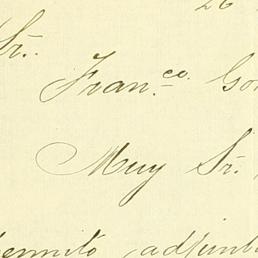 26
Sr.
Fran.co Gon
Muy Sr.
permito adjunt